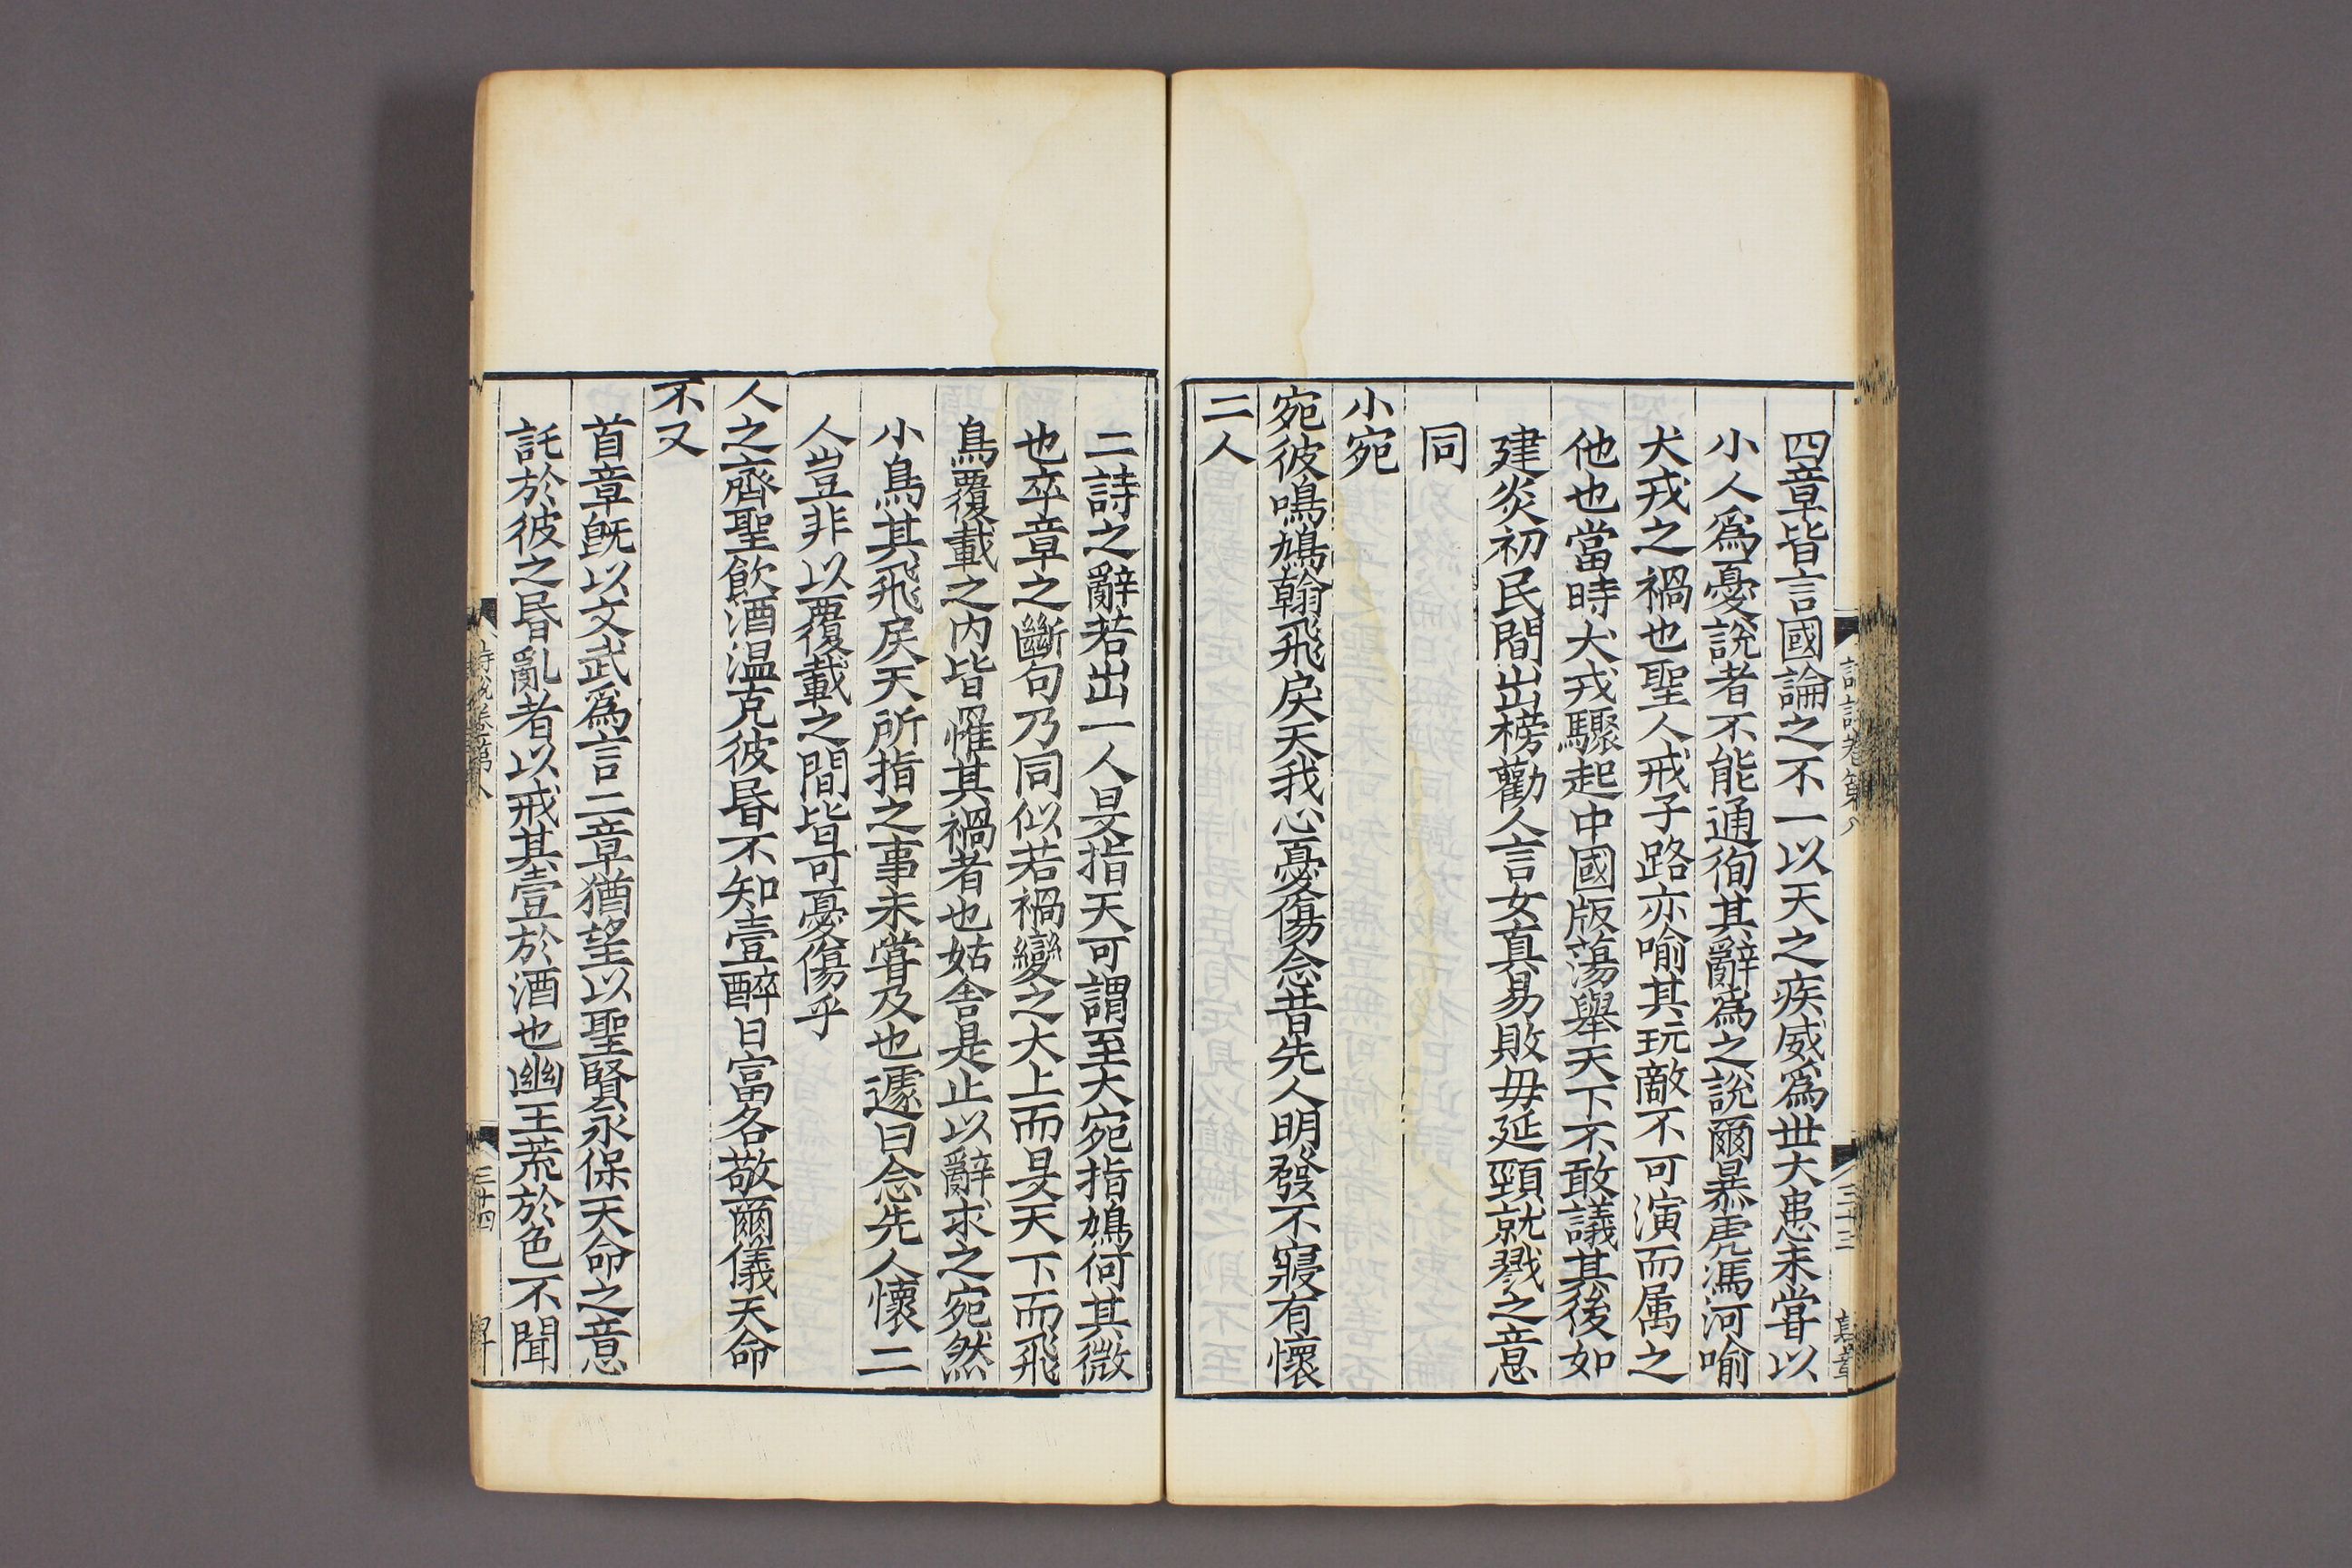 四章皆言國論之不一以天之疾威爲丗大患未甞以
小人爲憂說者不能通徇其辭爲之說爾暴虎馮河喻
犬戎之禍也聖人戒子路亦喻其玩敵不可演而属之
他也當時犬戎驟起中國版蕩舉天下不敢議其後如
建炎初民間出榜勸人言女真易敗毋延頸就戮之意
同
小宛
宛彼鳴鳩翰飛戾天我心憂傷念昔先人明發不寐有懷
二人
二詩之辭若出一人旻指天可謂至大宛指鳩何其微
也卒章之斷句乃同似若禍變之大上而旻天下而飛
鳥覆載之内皆罹其禍者也姑舍是止以辭求之宛然
小鳥其飛戾天所指之事未甞及也遽曰念先人懷二
人豈非以覆載之間皆可憂傷乎
人之齊聖飲酒温克彼昬不知壹醉日富各敬爾儀天命
不又
首章旣以文武爲言二章猶望以聖賢永保天命之意
託於彼之昬亂者以戒其壹於酒也幽王荒於色不聞
詩說卷第八
三十四